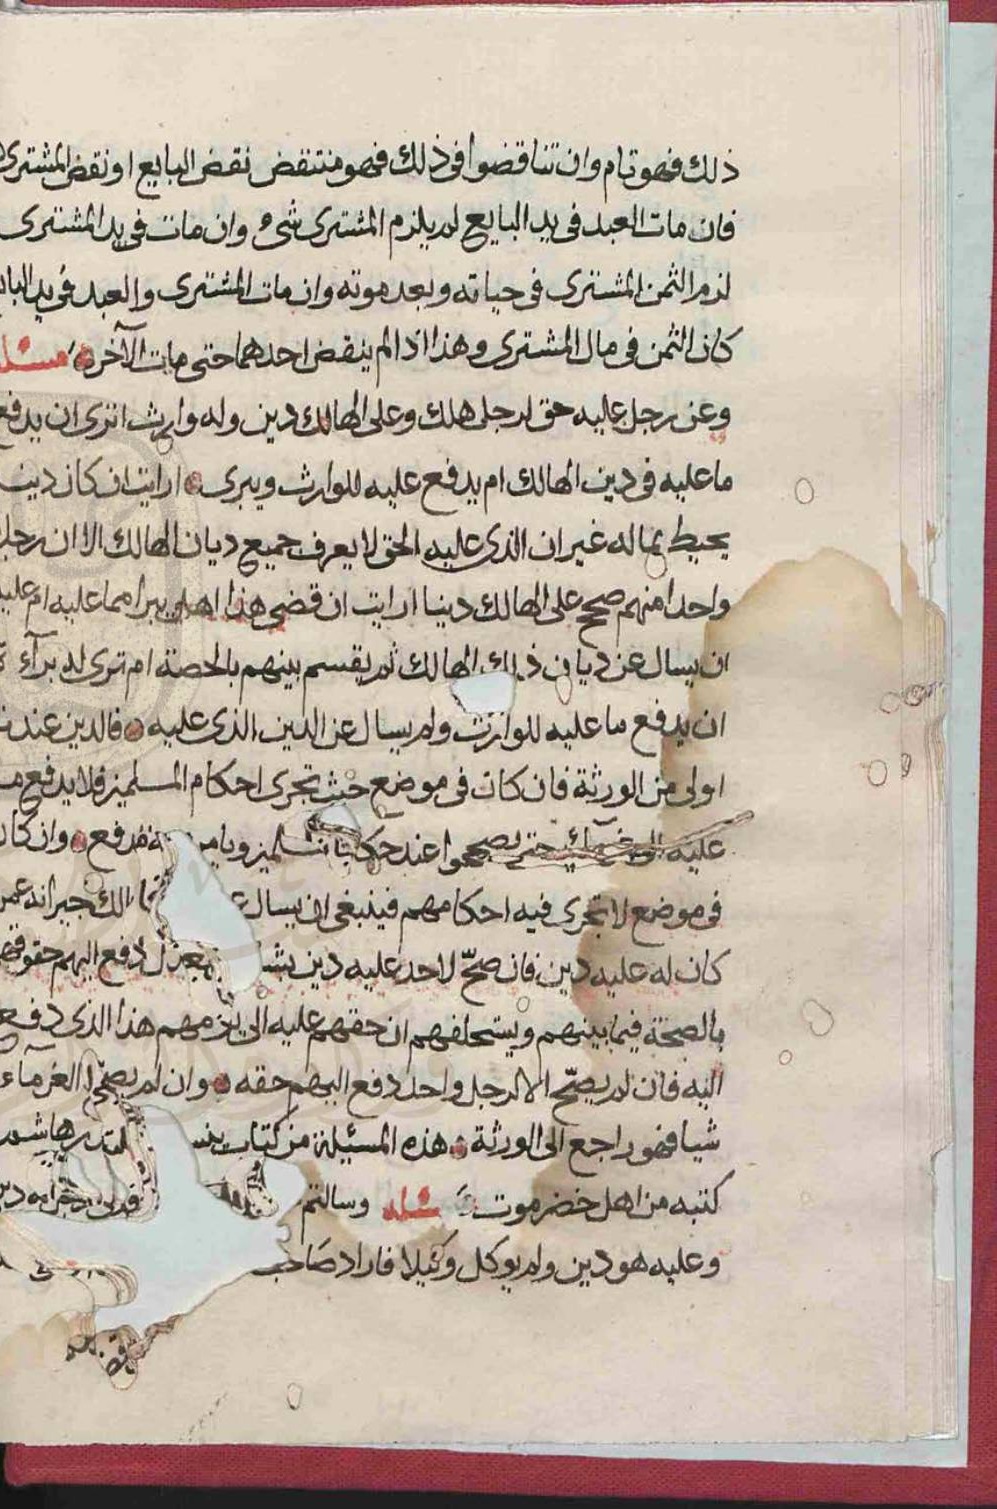 ذلك فهو تام وان تناقضوا فى ذلك فهو منتقض نقض البايع او نقض المشترى
فان مات العبد فى يد البايع لم يلزم المشترى شىء وان مات فى يد المشترى
لزم الثمن المشترى فى حياته وبعد موته وان مات المشترى والعبد فى يد
كان الثمن فى مال المشترى وهذا اذا لم ينقض احدهما حتى مات الآخر
وعن رجل عليه حق لرجل هلك وعلى الهالك دين وله وارث اترى ان يدفع
ما عليه فى دين الهالك ام يدفع عليه للوارث ويبرى ارايت ان كان دين
يحيط بماله غير ان الذى عليه الحق لا يعرف جميع ديان الهالك الا ان رجلا
واحدا منهم صح على الهالك دينا ارايت ان قضى هذا اهل يبرا مما عليه ام عليه
ان يسال عن ديان ذلك الهالك ثم يقسم بينهم بالحصة ام ترى له برآء
ان يدفع ما عليه للوارث ولم يسال عن الدين الذى عليه فالدين عندنا
اولى من الورثة فان كان فى موضع حيث تجرى احكام المسلمين فلا يدفع
عليه الى حتى يصححوا عند وان كان
فى موضع لا تجرى فيه احكامهم فينبغى ان يسال جيرانه عمن
كان له عليه دين فان صحّ لاحد عليه دين دفع اليهم حقوقهم
بالصحة فيما بينهم ويستحلفهم ان حقهم عليه الى هذا الذى دفع
اليه فان لم يصحّ الا لرجل واحد دفع اليهم حقه وان لم يصحّ الغرماء
شيا فهو راجع الى الورثة هذه المسئلة من كتاب
كتبه من اهل حضرموت مسئلة وسالتم
وعليه هو دين ولم يوكل وكيلا فاراد صاحب